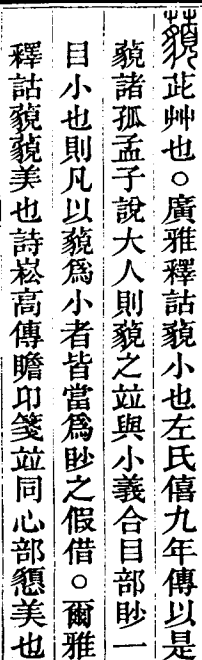 藐茈艸也○廣雅釋詁藐小也左氏僖九年傳以是
藐諸孤孟子說大人則藐之竝與小義合目部眇一
目小也則凡以藐爲小者皆當爲眇之假借○爾雅
釋詁藐藐美也詩崧高傳瞻卬箋竝同心部懇美也